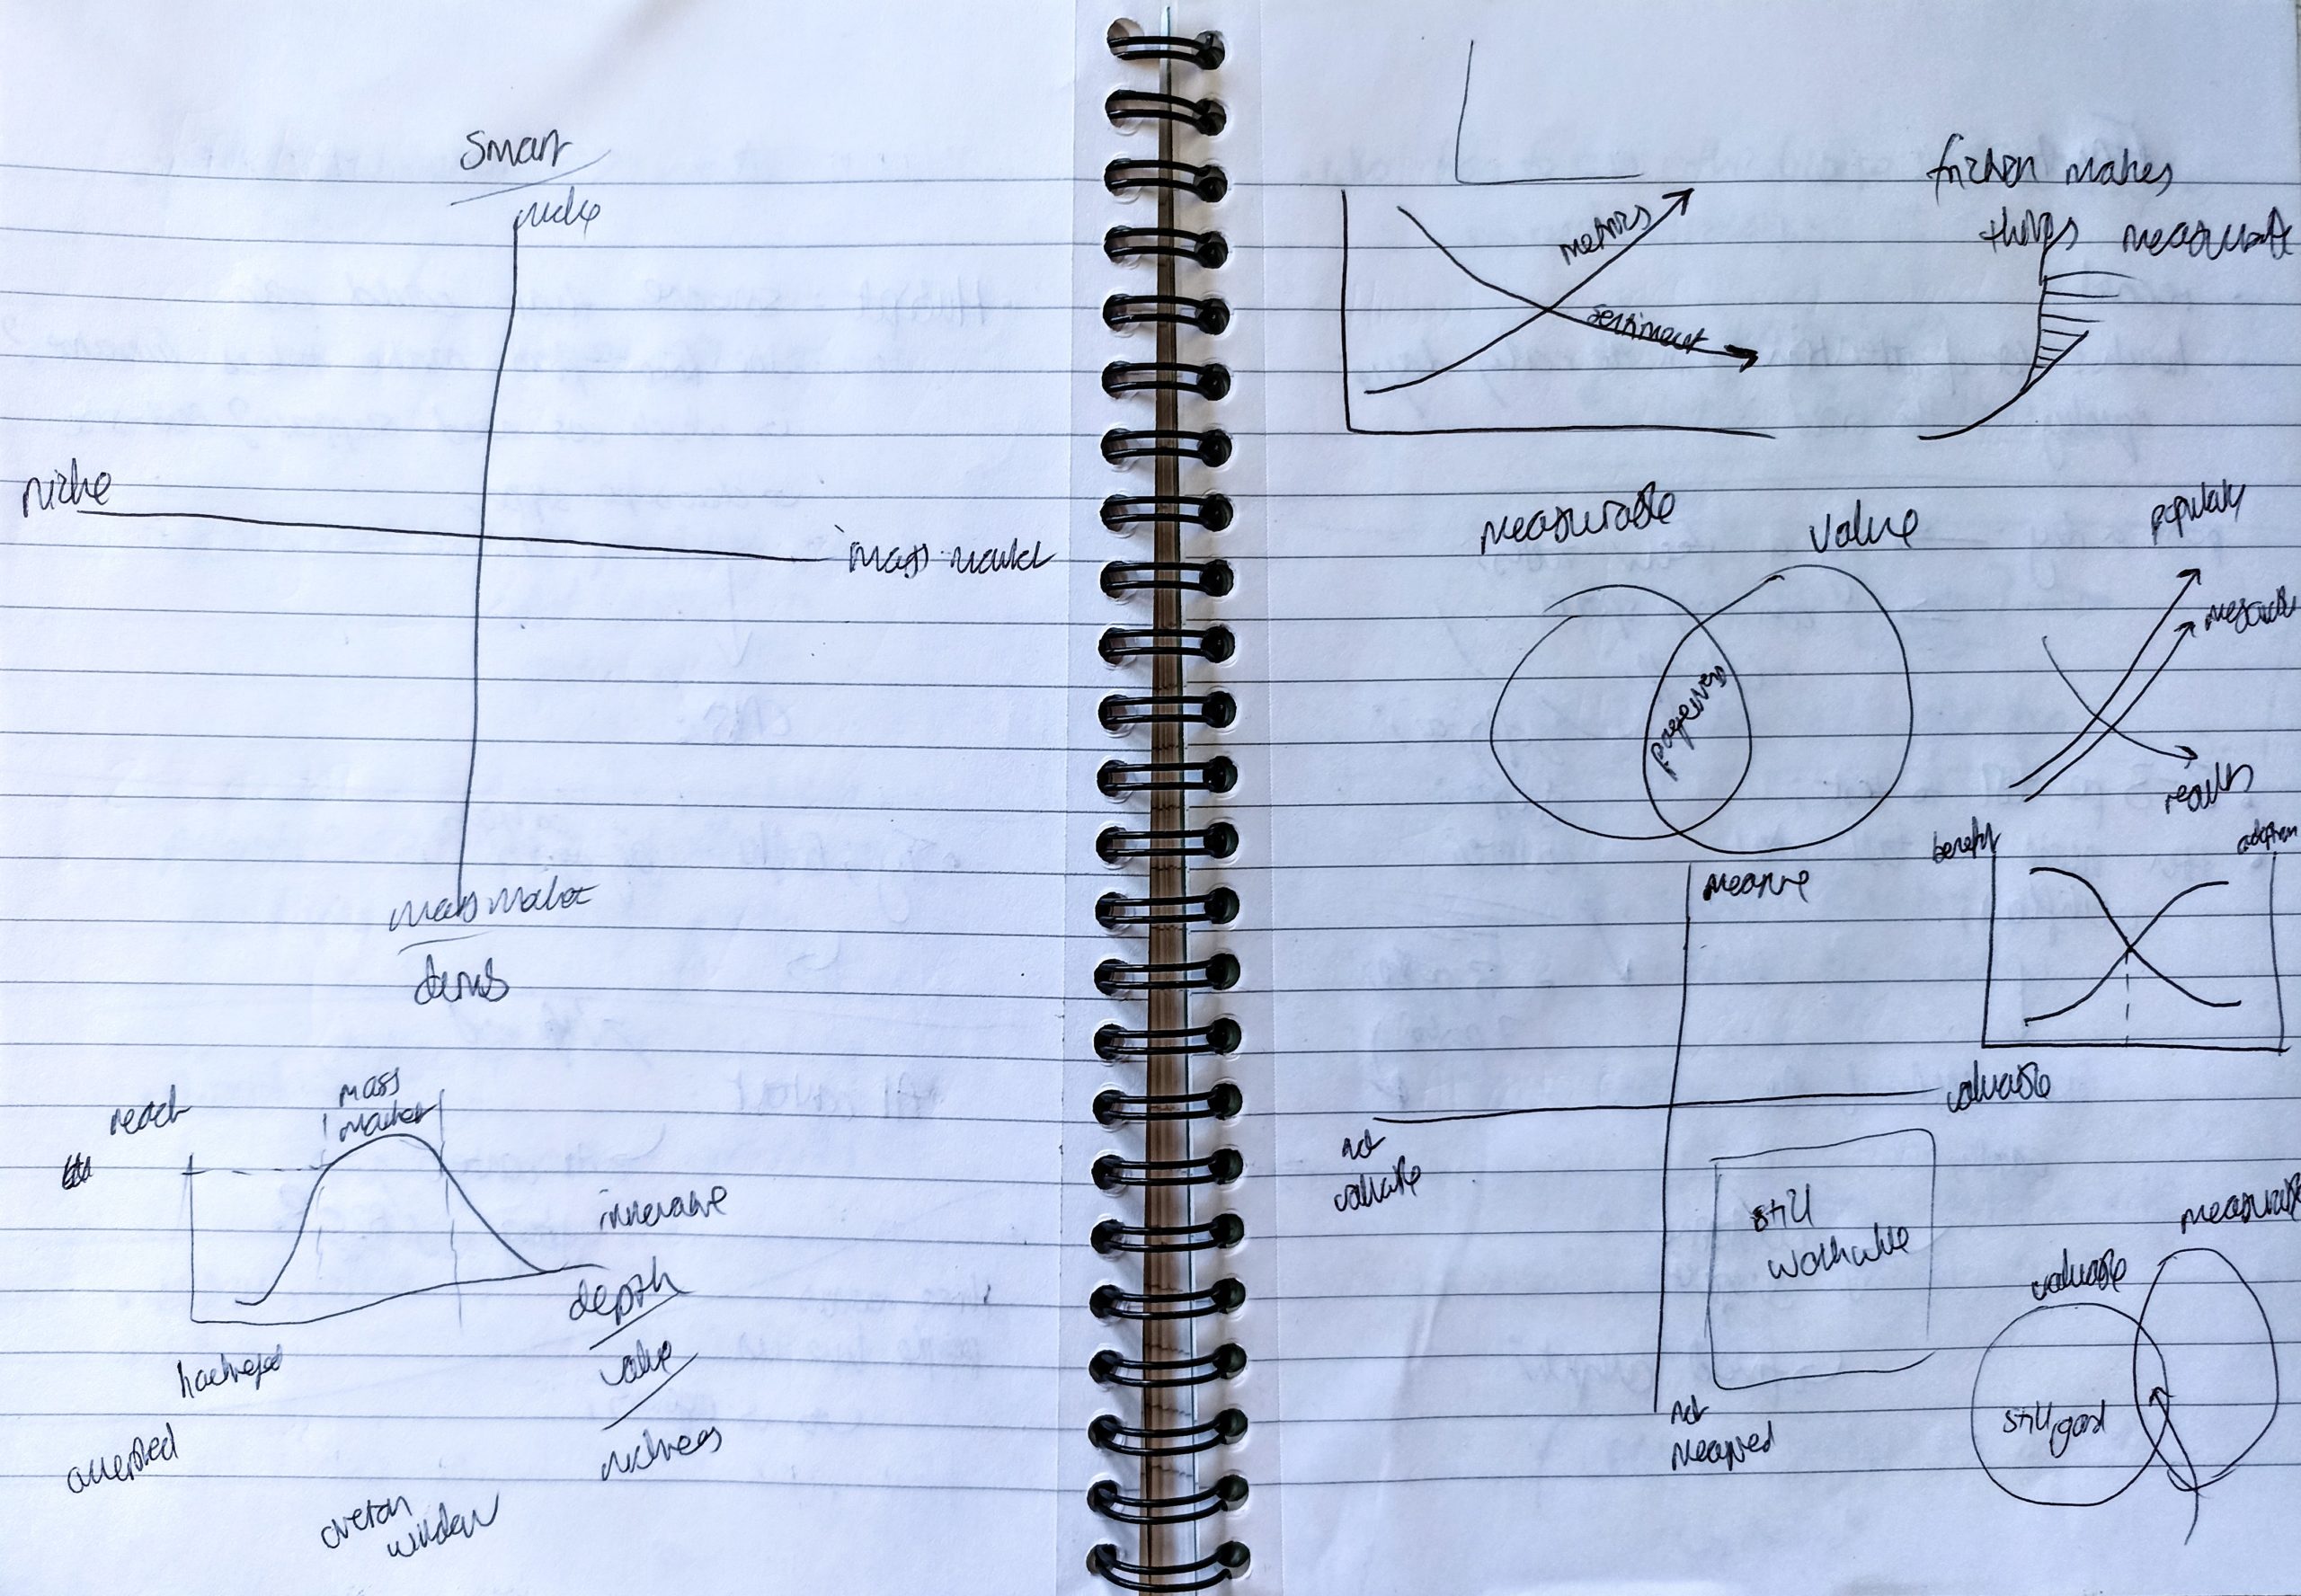 Smart
niche
niche
mass market
mass market
reach
mass
market
innovative
depth
value
nicheness
hackneyed
accepted
overton
window
friction makes
things measurable
metrics
sentiment
measurable
value
progressives
popularity
measurable
results
benefit
adoption
measure
valuable
not
valuable
still
worthwhile
not
measured
measurable
valuable
still good